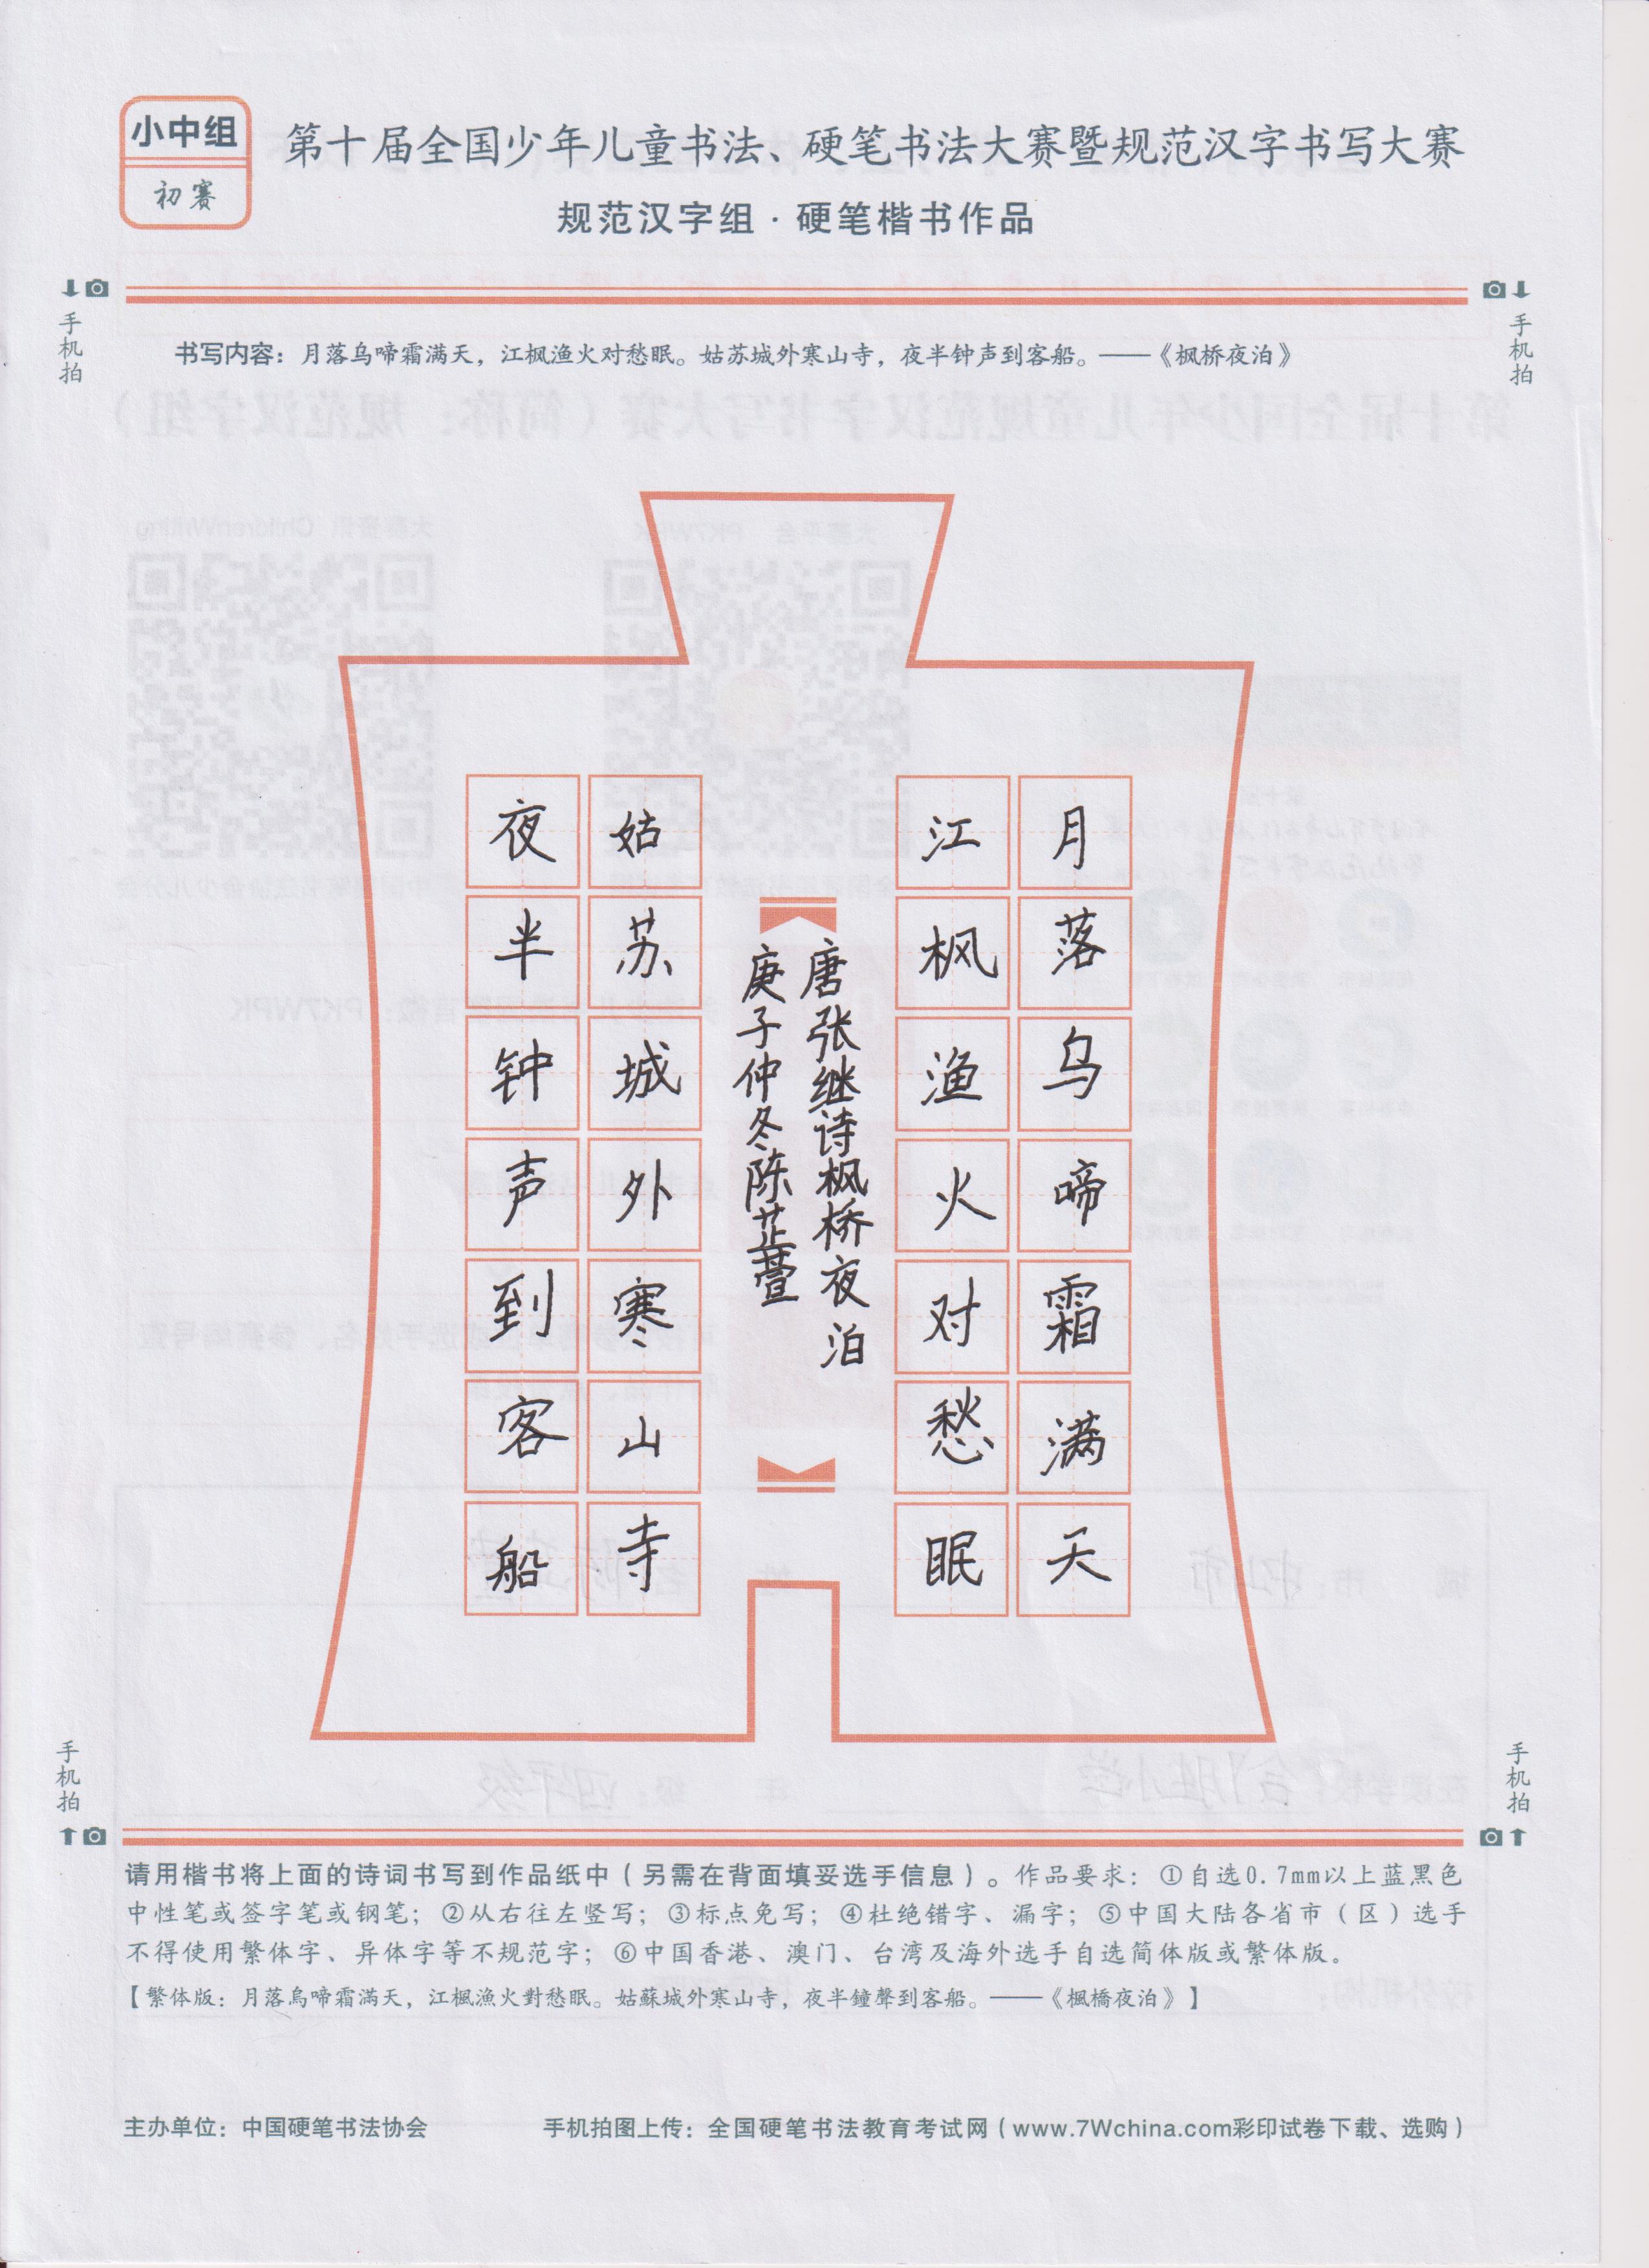 小中组
初赛
第十届全国少年儿童书法、硬笔书法大赛暨规范汉字书写大赛
规范汉字组·硬笔楷书作品
手机拍
手机拍
书写内容：月落乌啼霜满天，江枫渔火对愁眠。姑苏城外寒山寺，夜半钟声到客船。——《枫桥夜泊》
月落乌啼霜满天
江枫渔火对愁眠
唐张继诗枫桥夜泊
庚子仲冬陈芷萱
姑苏城外寒山寺
夜半钟声到客船
手机拍
手机拍
请用楷书将上面的诗词书写到作品纸中（另需在背面填妥选手信息）。作品要求：①自选0.7mm以上蓝黑色
中性笔或签字笔或钢笔；②从右往左竖写；③标点免写；④杜绝错字、漏字；⑤中国大陆各省市（区）选手
不得使用繁体字、异体字等不规范字；⑥中国香港、澳门、台湾及海外选手自选简体版或繁体版。
【繁体版：月落烏啼霜滿天，江楓漁火對愁眠。姑蘇城外寒山寺，夜半鐘聲到客船。——《楓橋夜泊》】
主办单位：中国硬笔书法协会
手机拍图上传：全国硬笔书法教育考试网（www.7Wchina.com彩印试卷下载、选购）